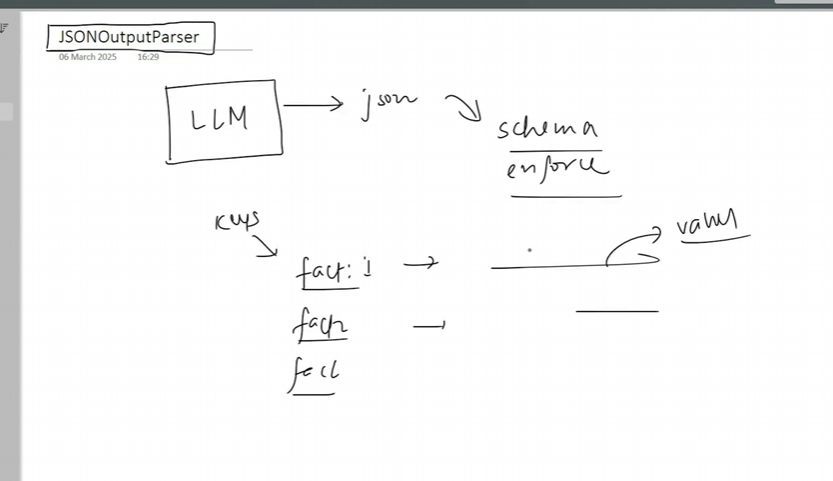 JSONOutputParser
06 March 2025 16:29
LLM
json
schema
enforce
keys
values
fact: 1
fact 2
fact